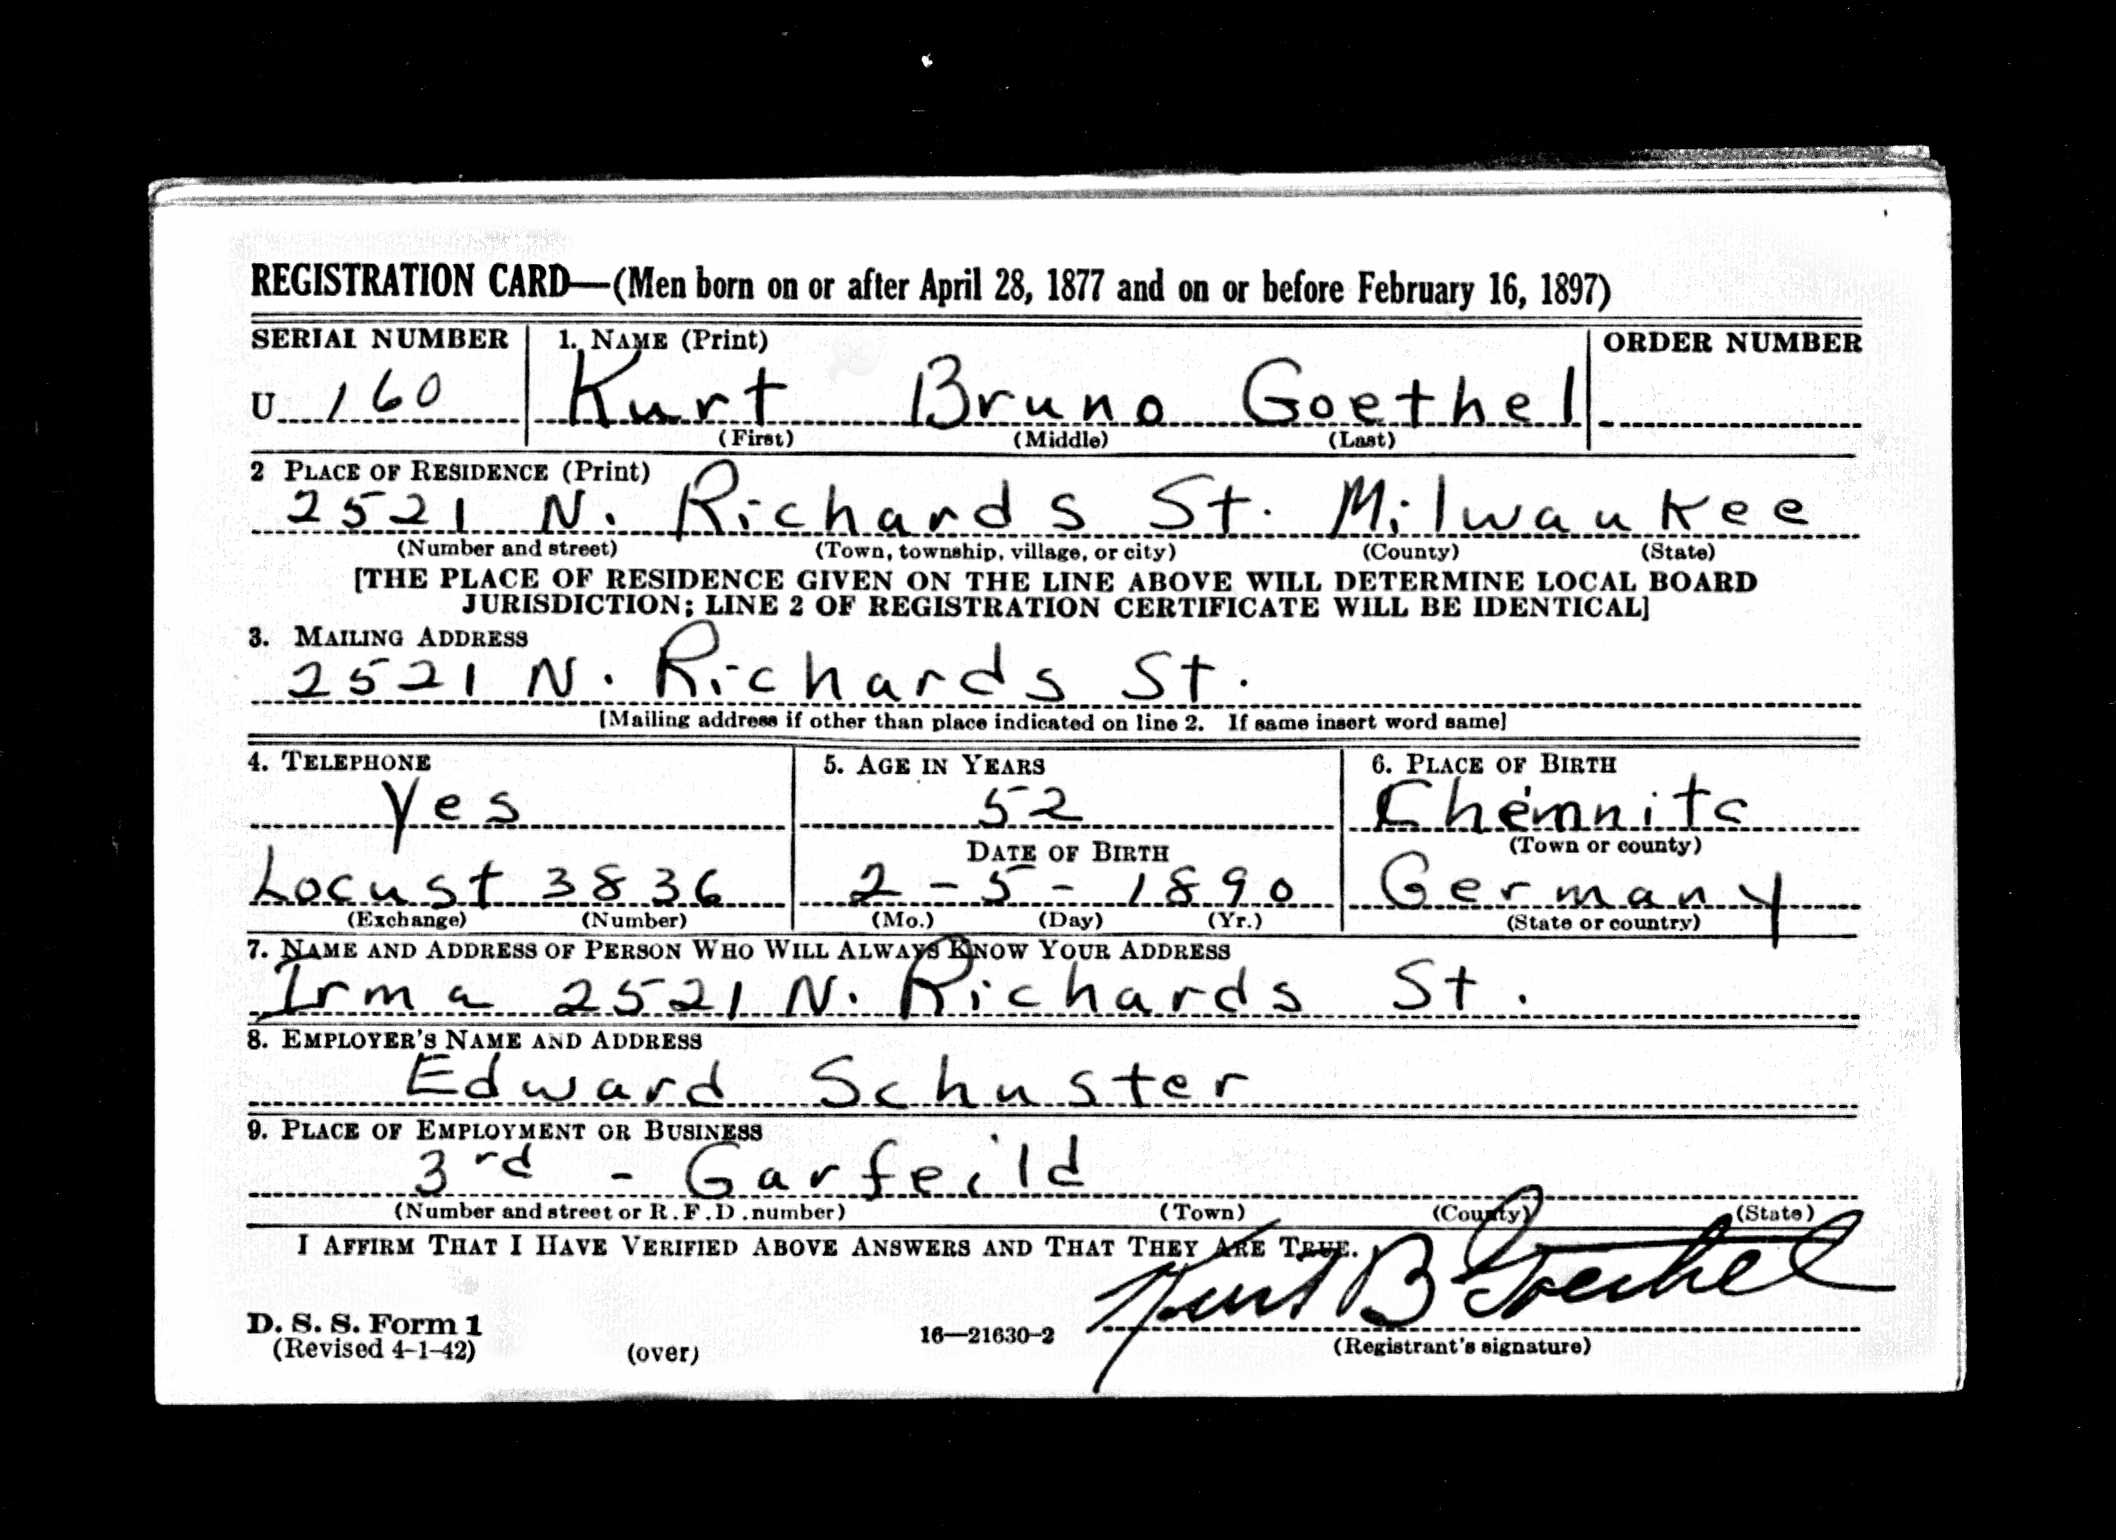 REGISTRATION CARD—(Men born on or after April 28, 1877 and on or before February 16, 1897)
SERIAL NUMBER 1. NAME (Print) ORDER NUMBER
U 160 Kurt Bruno Goethel
(First) (Middle) (Last)
2 PLACE OF RESIDENCE (Print)
2521 N. Richards St. Milwaukee
(Number and street) (Town, township, village, or city) (County) (State)
[THE PLACE OF RESIDENCE GIVEN ON THE LINE ABOVE WILL DETERMINE LOCAL BOARD
JURISDICTION; LINE 2 OF REGISTRATION CERTIFICATE WILL BE IDENTICAL]
3. MAILING ADDRESS
2521 N. Richards St.
[Mailing address if other than place indicated on line 2. If same insert word same]
4. TELEPHONE 5. AGE IN YEARS 6. PLACE OF BIRTH
Yes 52 Chemnitc
DATE OF BIRTH (Town or county)
Locust 3836 2-5-1890 Germany
(Exchange) (Number) (Mo.) (Day) (Yr.) (State or country)
7. NAME AND ADDRESS OF PERSON WHO WILL ALWAYS KNOW YOUR ADDRESS
Irma 2521 N. Richards St.
8. EMPLOYER'S NAME AND ADDRESS
Edward Schuster
9. PLACE OF EMPLOYMENT OR BUSINESS
3rd - Garfeild
(Number and street or R.F.D. number) (Town) (County) (State)
I AFFIRM THAT I HAVE VERIFIED ABOVE ANSWERS AND THAT THEY ARE TRUE.
Kurt B Goethel
D. S. S. Form 1
(Revised 4-1-42) (over) 16—21630-2 (Registrant's signature)